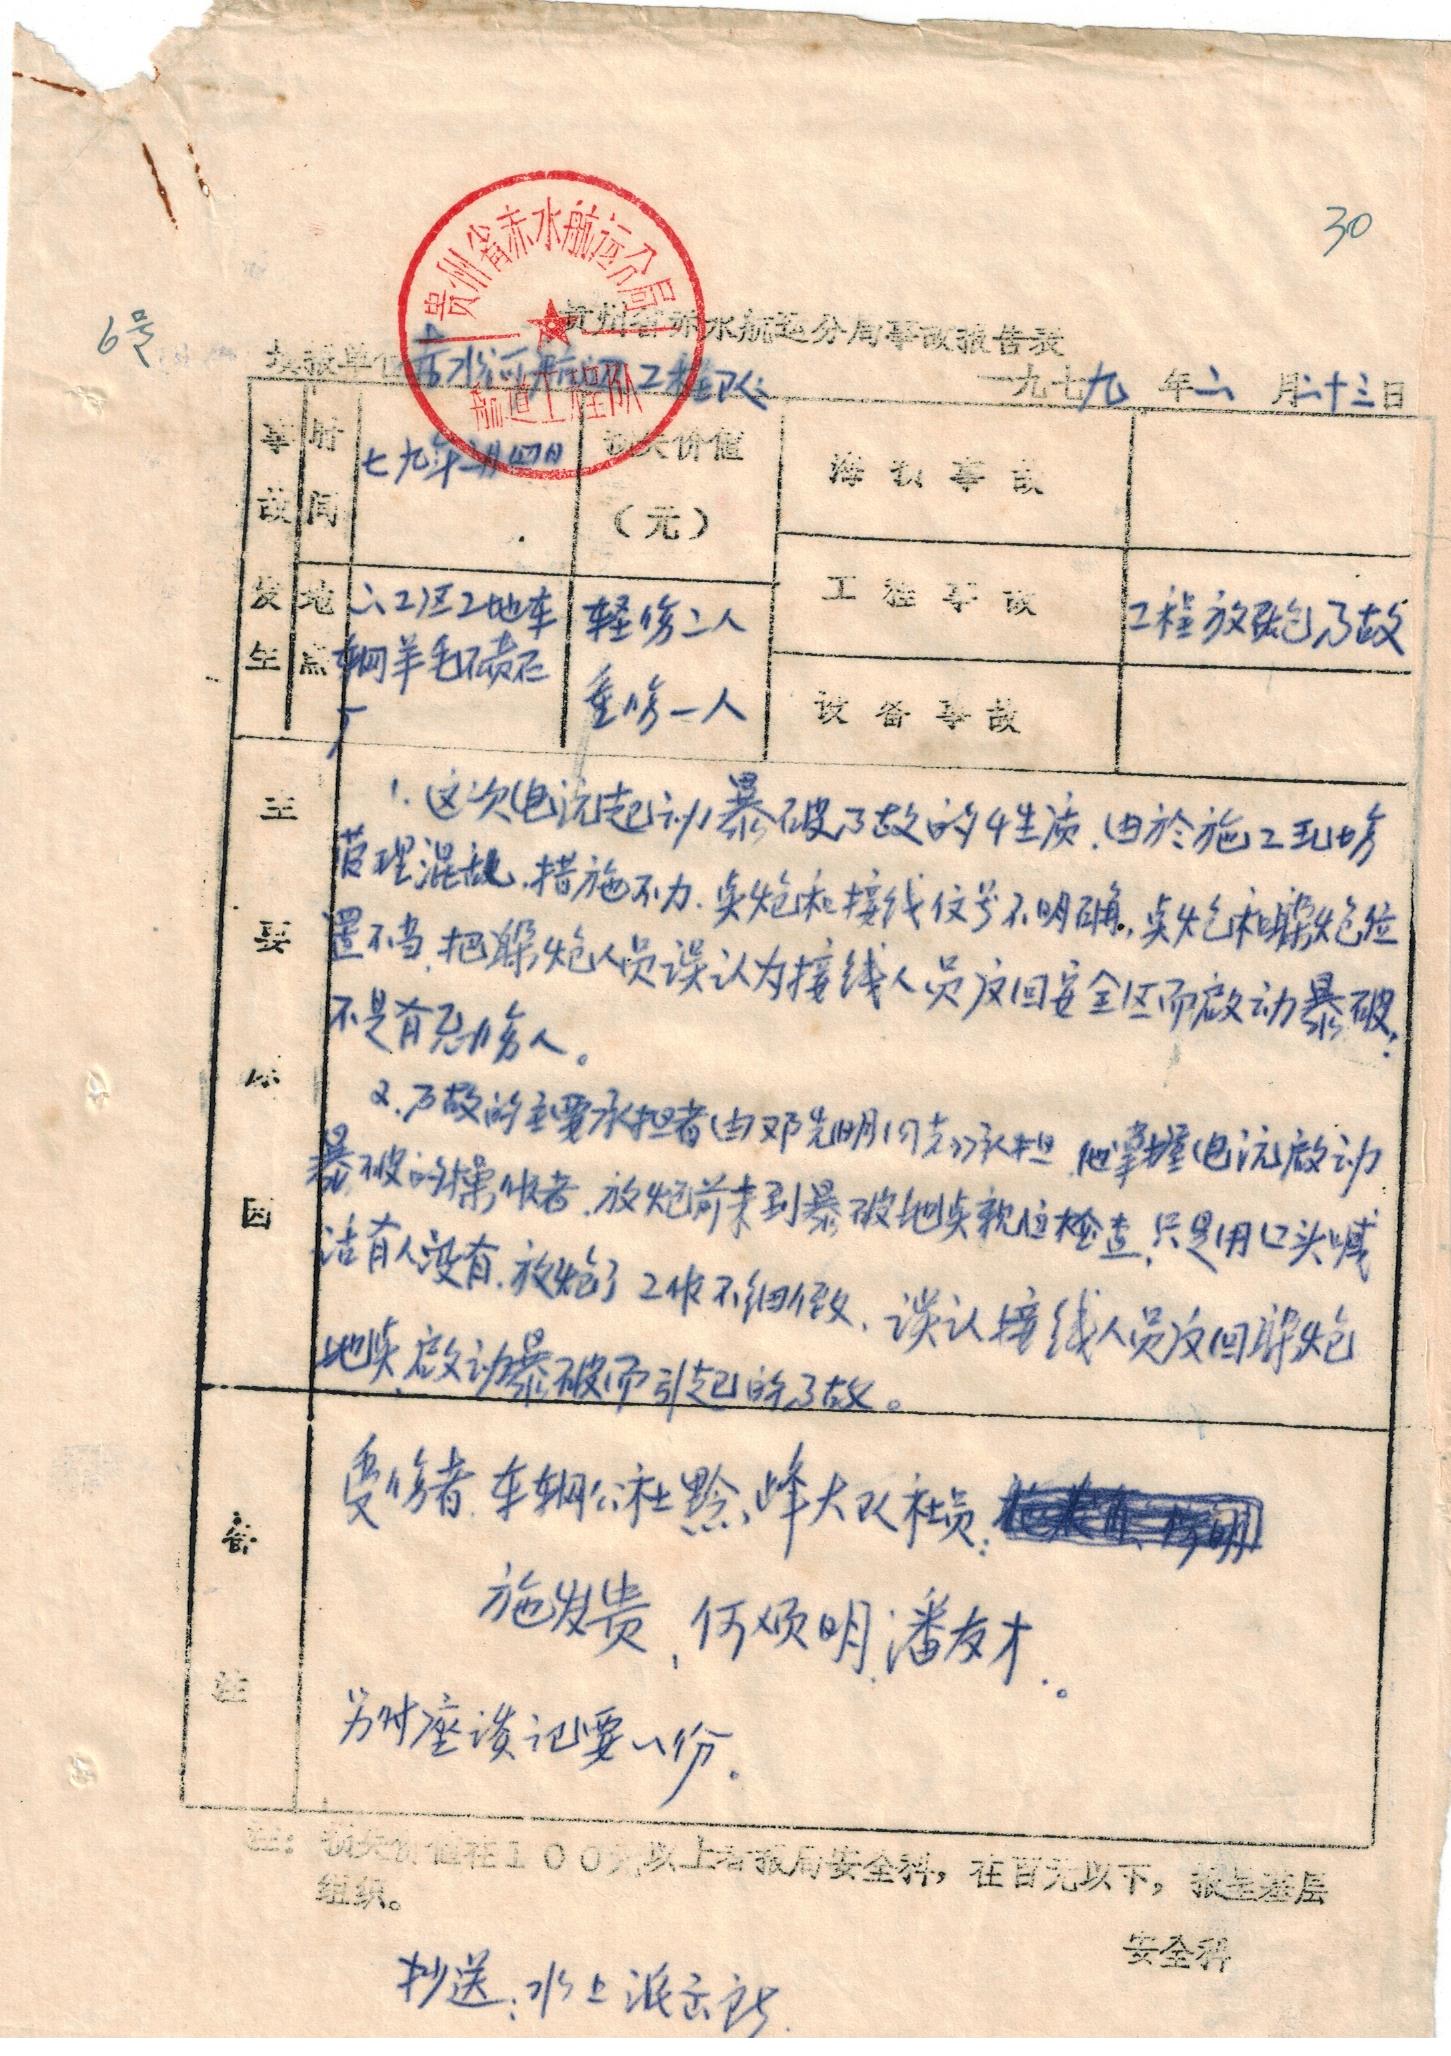 30
6号
贵州省赤水航运分局
航道工程队
贵州省赤水航运分局事故报告表
填报单位 赤水河航道工程队 一九七九年六月二十三日
事故发生 时间 七九年二月四日 损失价值（元） 海损事故
地点 六工区工地车辋羊毛碛石厂 轻伤二人 重伤一人 工程事故 工程放炮了故
设备事故
主要原因
1.这次电流起动暴破了故的性质，由於施工现场
管理混乱、措施不力、点炮和接线信号不明确，点炮和躲炮位
置不当，把躲炮人员误认为接线人员返回安全区而启动暴破，
不是有意伤人。
2.了故的主要承担者由邓先明同志承担，他掌握电流启动
暴破的操作者，放炮前未到暴破地点亲位检查，只是用口头喊
话有人没有，放炮了工作不细致，误认接线人员返回躲炮
地点启动暴破而引起的了故。
备注
受伤者、车辋公社黔峰大队社员：
施发贵、何顺明、潘友才。
另附座谈记要一份。
注：损失价值在100元以上者报局安全科，在百元以下，报至基层
组织。
安全科
抄送：水上派出所